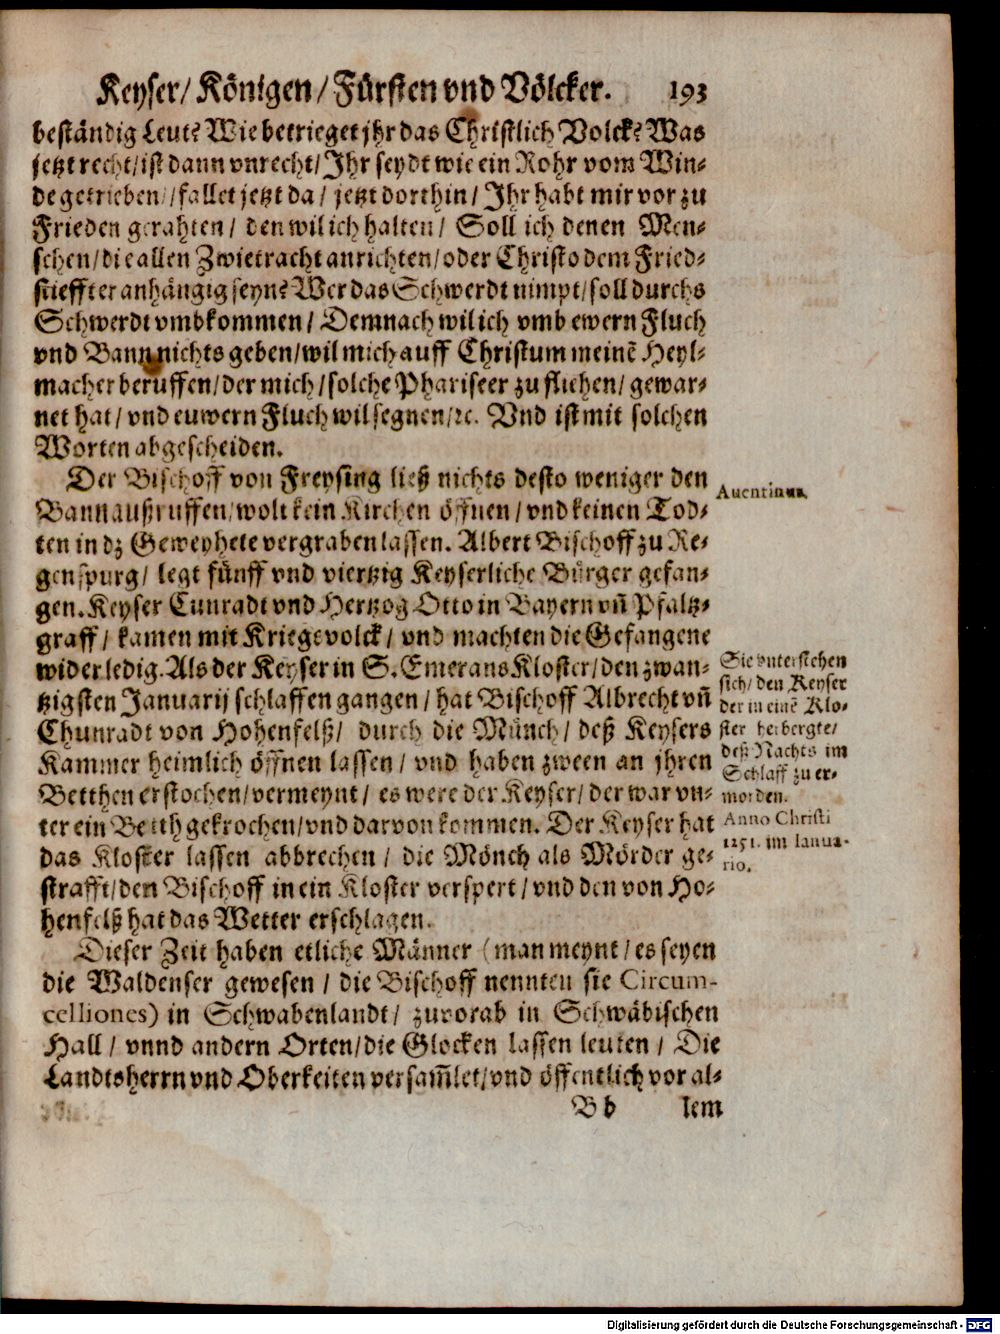 Keyser/ Königen/ Fürsten vnd Völcker. 193
beständig Leut? Wie betrieget jhr das Christlich Volck? Was
jetzt recht/ ist dann vnrecht/ Jhr seydt wie ein Rohr vom Win-
de getrieben/ fallet jetzt da/ jetzt dorthin/ Jhr habt mir vor zu
Frieden gerahten/ den wil ich halten/ Soll ich denen Men-
schen/ die allen Zwietracht anrichten/ oder Christo dem Fried-
stieffter anhängig seyn? Wer das Schwerdt nimpt/ soll durchs
Schwerdt vmbkommen/ Demnach wil ich vmb ewern Fluch
vnd Bann nichts geben/ wil mich auff Christum meinẽ Heyl-
macher beruffen/ der mich/ solche Phariseer zu fliehen/ gewar-
net hat/ vnd euwern Fluch wil segnen/ ꝛc. Vnd ist mit solchen
Worten abgescheiden.
Der Bischoff von Freysing ließ nichts desto weniger den
Bann außruffen/ wolt kein Kirchen öffnen/ vnd keinen Tod-
ten in dz Geweyhete vergraben lassen. Albert Bischoff zu Re-
genspurg/ legt fünff vnd viertzig Keyserliche Bürger gefan-
gen. Keyser Cunradt vnd Hertzog Otto in Bayern vñ Pfaltz-
graff/ kamen mit Kriegsvolck/ vnd machten die Gefangene
wider ledig. Als der Keyser in S. Emerans Kloster/ den zwan-
tzigsten Januarij schlaffen gangen/ hat Bischoff Albrecht vñ
Chunradt von Hohenfelß/ durch die Münch/ deß Keysers
Kammer heimlich öffnen lassen/ vnd haben zween an jhren
Betthen erstochen/ vermeynt/ es were der Keyser/ der war vn-
ter ein Betth gekrochen/ vnd darvon kommen. Der Keyser hat
das Kloster lassen abbrechen/ die Mönch als Mörder ge-
strafft/ den Bischoff in ein Kloster verspert/ vnd den von Ho-
henfelß hat das Wetter erschlagen.
Dieser Zeit haben etliche Männer (man meynt/ es seyen
die Waldenser gewesen/ die Bischoff nennten sie Circum-
celliones) in Schwabenlandt/ zuvorab in Schwäbischen
Hall/ vnnd andern Orten/ die Glocken lassen leuten/ Die
Landtsherrn vnd Oberkeiten versam̃let/ vnd öffentlich vor al-
B b lem
Auentinus.
Sie vnterstehen
sich/ den Keyser
der in einẽ Klo-
ster herbergte/
deß Nachts im
Schlaff zu er-
morden.
Anno Christi
1251. im Ianua-
rio.
Digitalisierung gefördert durch die Deutsche Forschungsgemeinschaft - DFG